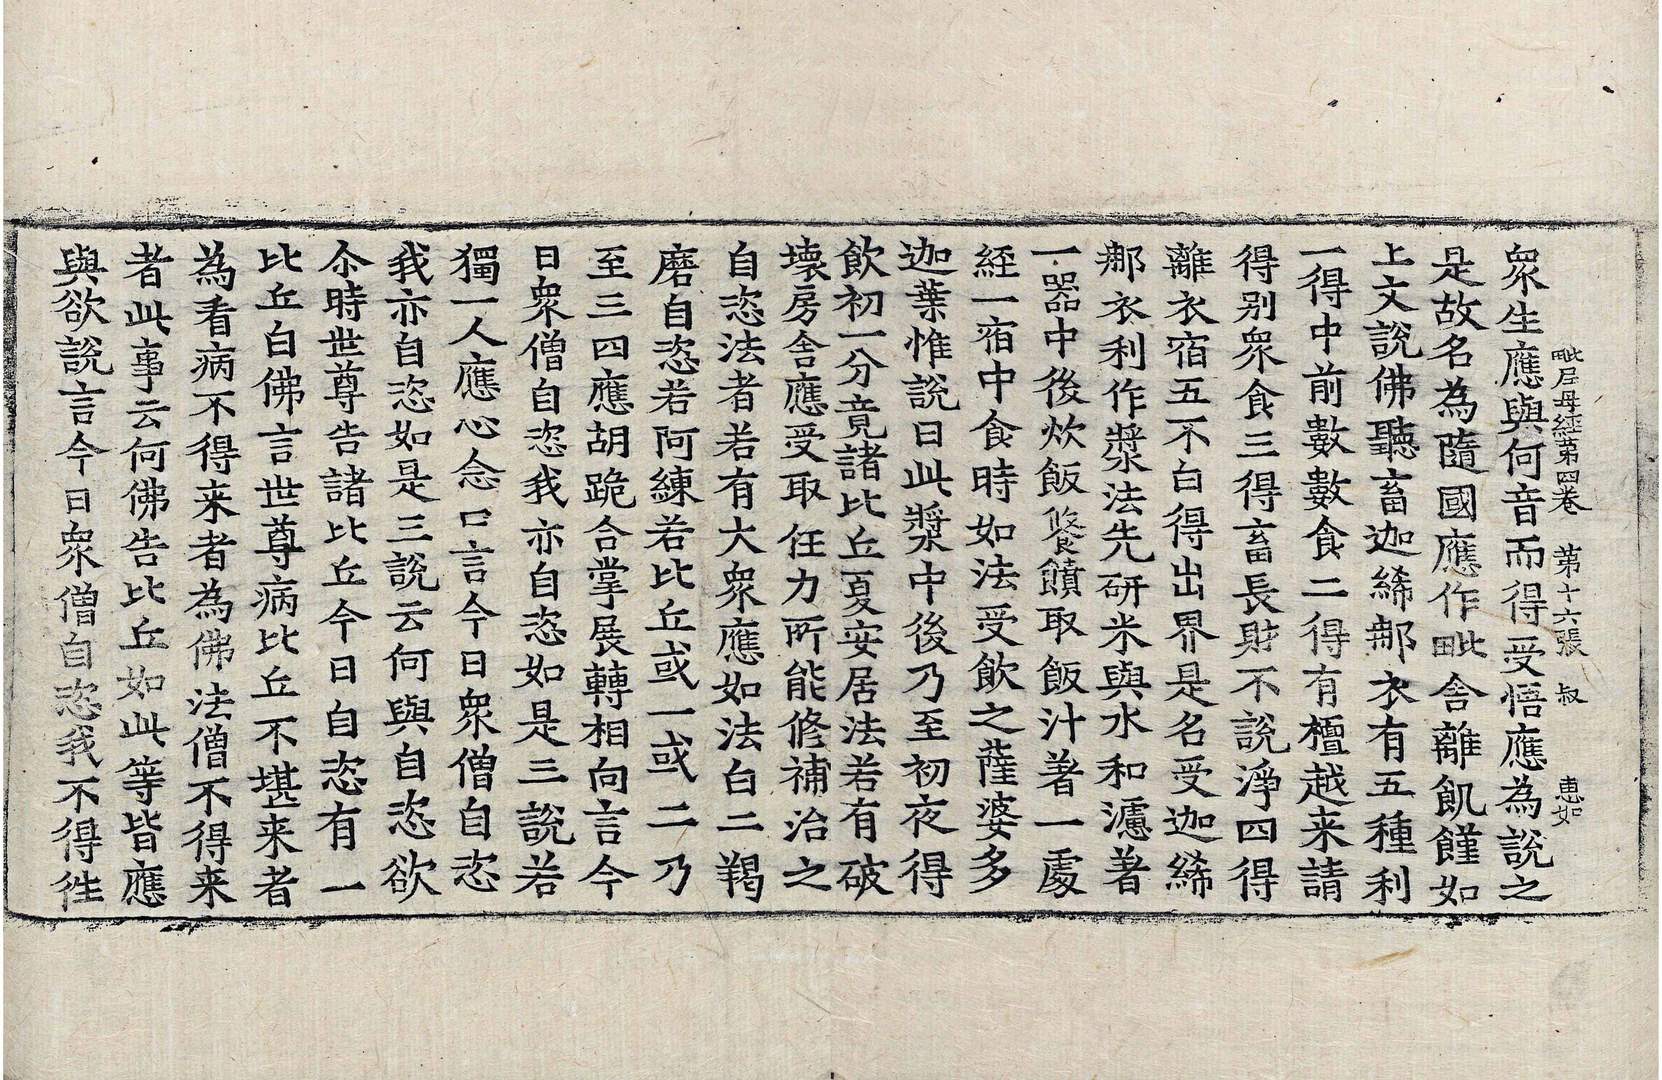 毗尼母經第四卷　第十六張　叔　惠如
衆生應與何音而得受悟應為說之
是故名為隨國應作毗舍離飢饉如
上文說佛聽畜迦絺那衣有五種利
一得中前數數食二得有檀越来請
得別衆食三得畜長財不說淨四得
離衣宿五不白得出界是名受迦絺
那衣利作漿法先研米與水和濾著
一器中後炊飯餐饙取飯汁著一處
経一宿中食時如法受飲之薩婆多
迦葉惟說曰此漿中後乃至初夜得
飲初一分竟諸比丘夏安居法若有破
壊房舍應受取任力所能修補治之
自恣法者若有大衆應如法白二羯
磨自恣若阿練若比丘或一或二乃
至三四應胡跪合掌展轉相向言今
日衆僧自恣我亦自恣如是三說若
獨一人應心念口言今日衆僧自恣
我亦自恣如是三說云何與自恣欲
尒時世尊告諸比丘今日自恣有一
比丘白佛言世尊病比丘不堪来者
為看病不得来者為佛法僧不得来
者此事云何佛告比丘如此等皆應
與欲說言今日衆僧自恣我不得徃